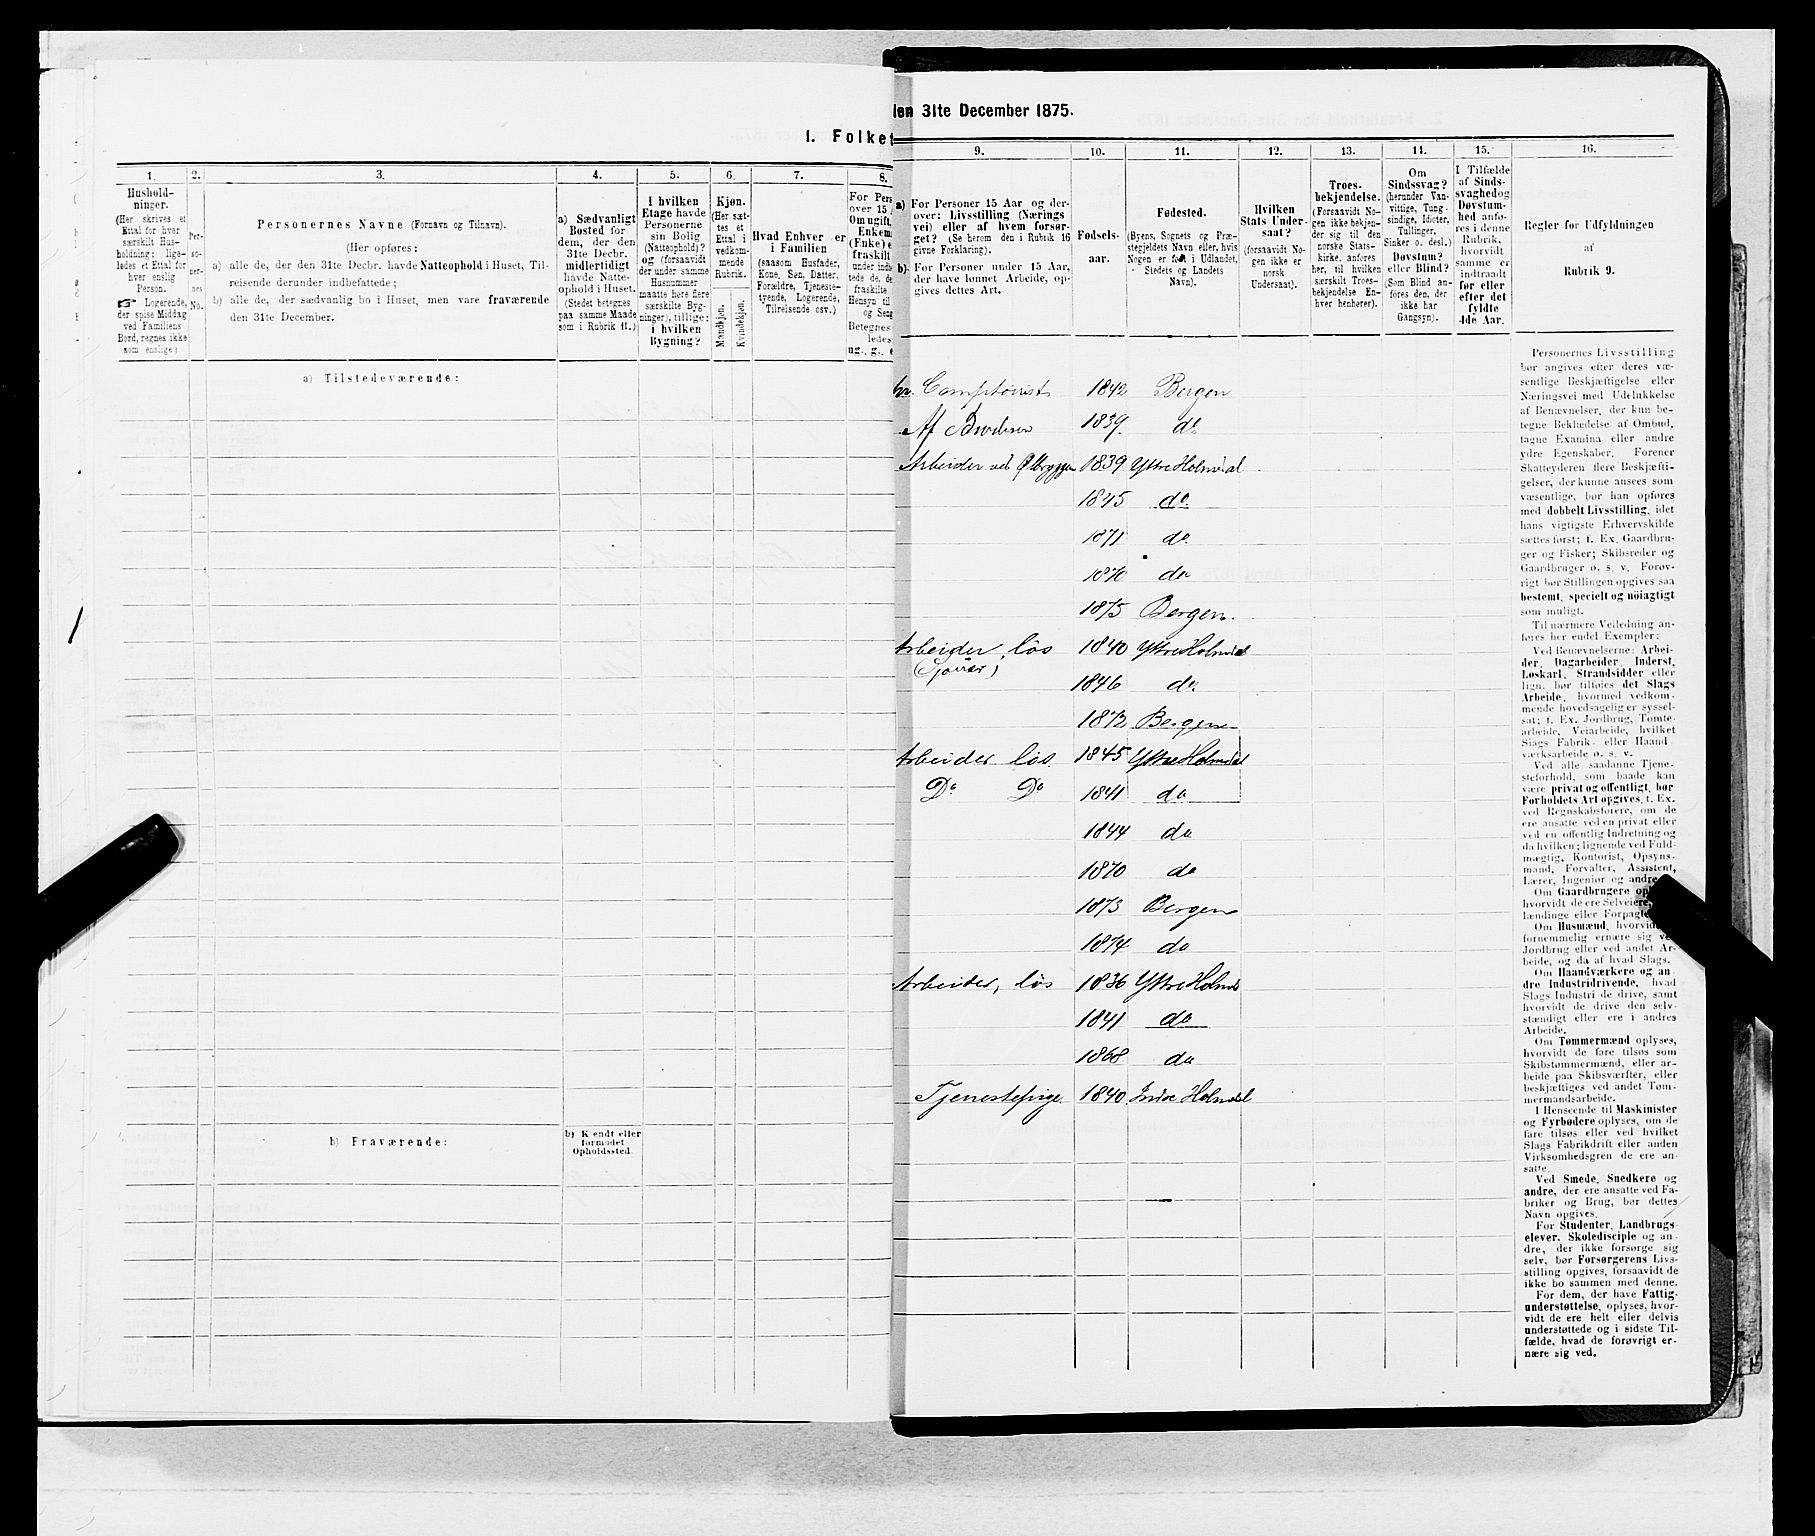 1. Folket
1. 2. 3. 4. 5. 6. 7. 8.
Hushold-
ninger.
(Her skrives et
Ettal for hver
særskilt Hus-
holdning; lige-
ledes et Ettal for
hver enslig
Person.
☞ Logerende,
der spise Middag
ved Familiens
Bord, regnes ikke
som enslige)
Per-
so-
ner-
nes
No.
Personernes Navne (Fornavn og Tilnavn).
(Her opføres:
a) alle de, der den 31te Decbr. havde Natteophold i Huset, Til-
reisende derunder indbefattede;
b) alle de, der sædvanlig bo i Huset, men vare fraværende
den 31te December.
a) Sædvanligt
Bosted for
dem, der den
31te Decbr.
midlertidigt
havde Natte-
ophold i Huset.
(Stedet betegnes
paa samme Maade
som i Rubrik 11.)
I hvilken
Etage havde
Personerne
sin Bolig
(Natteophold)?
og (forsaavidt
der under samme
Husnummer
maatte høre flere
særskilte Byg-
ninger), tillige:
i hvilken
Bygning?
Kjøn.
(Her sæt-
tes et
Ettal i
vedkom-
mende
Rubrik.
Mandkjøn.
Kvindekjøn.
Hvad Enhver er
i Familien
(saasom Husfader,
Kone, Søn, Datter,
Forældre, Tjeneste-
tyende, Logerende,
Tilreisende osv.)
For Pers
over 15 A
Om ugift,
Enkem
(Enke) e
fraskilt
under indb
tede de, de
fraskilte
Hensyn til
og Seng
Betegnes
ledes
ug., g., e
a) Tilstedeværende:
b) Fraværende:
b) Kjendt eller
formodet
Opholdssted.
den 31te December 1875.
9. 10. 11. 12. 13. 14. 15. 16.
a) For Personer 15 Aar og der-
over: Livsstilling (Nærings
vei) eller af hvem forsør-
get? (Se herom den i Rubrik 16
givne Forklaring).
b) For Personer under 15 Aar,
der have lønnet Arbeide, op-
gives dettes Art.
Fødsels-
aar.
Fødested.
(Byens, Sognets og Præ-
stegjeldets Navn eller, hvis
Nogen er født i Udlandet,
Stedets og Landets
Navn).
Hvilken
Stats Under-
saat?
(forsaavidt No-
gen ikke er
norsk
Undersaat).
Troes-
bekjendelse.
(Forsaavidt No-
gen ikke bekjen-
der sig til den
norske Stats-
kirke, anføres
her, til hvilken
særskilt Troes-
bekjendelse En-
hver henhører).
Om
Sindssvag?
(herunder Van-
vittige, Tung-
sindige, Idioter,
Tullinger,
Sinker o. desl.)
Døvstum?
eller Blind?
(Som Blind an-
føres den, der
ikke har
Gangsyn).
I Tilfælde
af Sinds-
svaghed og
Døvstum-
hed anfø-
res i denne
Rubrik,
hvorvidt
samme er
indtraadt
før eller
efter det
fyldte
4de Aar.
Regler for Udfyldningen
af
Rubrik 9.
Comptoirist 1842 Bergen
Af Broderen 1839. do
Arbeider ved Ølbryggen 1839 Ytre Holmdal
1845 do.
1871 do.
1870 do
1875 Bergen.
Arbeider, løs 1840 Ytre Holmdal
1846 do.
1872 Bergen
Arbeider løs. 1845 Ytre Holmdal
Do Do 1841 do
1844 do
1870 do
1873 Bergen
1874 do
Arbeider, løs 1836 Ytre Holmd
1841 do
1868 do
Tjenestepige. 1840. Indre Holmdal
Personernes Livsstilling
bør angives efter deres væ-
sentlige Beskjæftigelse eller
Næringsvei med Udelukkelse
af Benævnelser, der kun be-
tegne Beklædelse af Ombud,
tagne Examina eller andre
ydre Egenskaber. Forener
Skatteyderen flere Beskjæfti-
gelser, der kunne ansees som
væsentlige, bør han opføres
med dobbelt Livsstilling, idet
hans vigtigste Erhvervskilde
sættes først; f. Ex. Gaardbru-
ger og Fisker; Skibsreder og
Gaardbruger o. s. v. Forøv-
rigt bør Stillingen opgives saa
bestemt, specielt og nöiagtigt
som muligt.
Til nærmere Veiledning an-
føres her endel Exempler:
Ved Benævnelserne: Arbei-
der, Dagarbeider, Inderst,
Løskarl, Strandsidder eller
lign. bør tilføies det Slags
Arbeide, hvormed vedkom-
mende hovedsagelig er syssel-
sat; f. Ex. Jordbrug, Tomte-
arbeide, Veiarbeide, hvilket
Slags Fabrik- eller Haand-
værksarbeide o. s. v.
Ved alle saadanne Tjene-
steforhold, som baade kan
være privat og offentligt, bør
Forholdets Art opgives, f. Ex.
ved Regnskabsførere, om de
ere ansatte ved en privat eller
ved en offentlig Indretning og
da hvilken; lignende ved Fuld-
mægtig, Kontorist, Opsyns-
mand, Forvalter, Assistent,
Lærer, Ingeniør og andre.
Om Gaardbrugere op
hvorvidt de ere Selveiere,
lændinge eller Forpagte
Om Husmænd, hvorvid
fornemmelig ernære sig v
Jordbrug eller ved andet Ar-
beide, og da af hvad Slags.
Om Haandværkere og an-
dre Industridrivende, hvad
Slags Industri de drive, samt
hvorvidt de drive den selv-
stændigt eller ere i andres
Arbeide.
Om Tømmermænd oplyses,
hvorvidt de fare tilsøs som
Skibstømmermænd, eller ar-
beide paa Skibsværfter, eller
beskjæftiges ved andet Tøm-
mermandsarbeide.
I Henseende til Maskinister
og Fyrbødere oplyses, om de
fare tilsøs eller ved hvilket
Slags Fabrikdrift eller anden
Virksomhedsgren de ere an-
satte.
Ved Smede, Snedkere og
andre, der ere ansatte ved Fa-
briker og Brug, bør dettes
Navn opgives.
For Studenter, Landbrugs-
elever, Skoledisciple og an-
dre, der ikke forsørge sig
selv, bør Forsørgerens Livs-
stilling opgives, forsaavidt de
ikke bo sammen med denne.
For dem, der have Fattig-
understøttelse, oplyses, hvor-
vidt de ere helt eller delvis
understøttede og i sidste Til-
fælde, hvad de forøvrigt er-
nære sig ved.